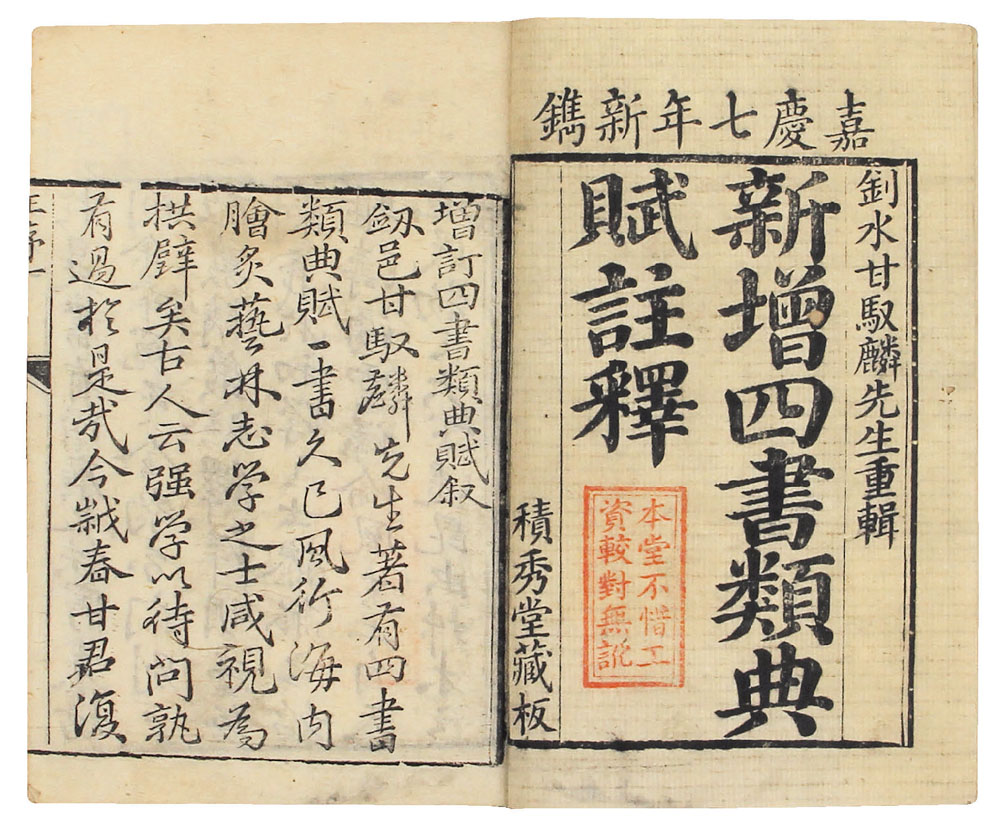 嘉慶七年新鐫
釗水甘馭麟先生重輯
新增四書類典
賦註釋
本堂不惜工
資較對無訛
積秀堂藏板
增訂四書類典賦叙
劔邑甘馭麟先生著有四書
類典賦一書久已風行海内
膾炙藝林志学之士咸視為
拱璧矣古人云强学以待問孰
有過於是哉今嵗春甘君復
序一